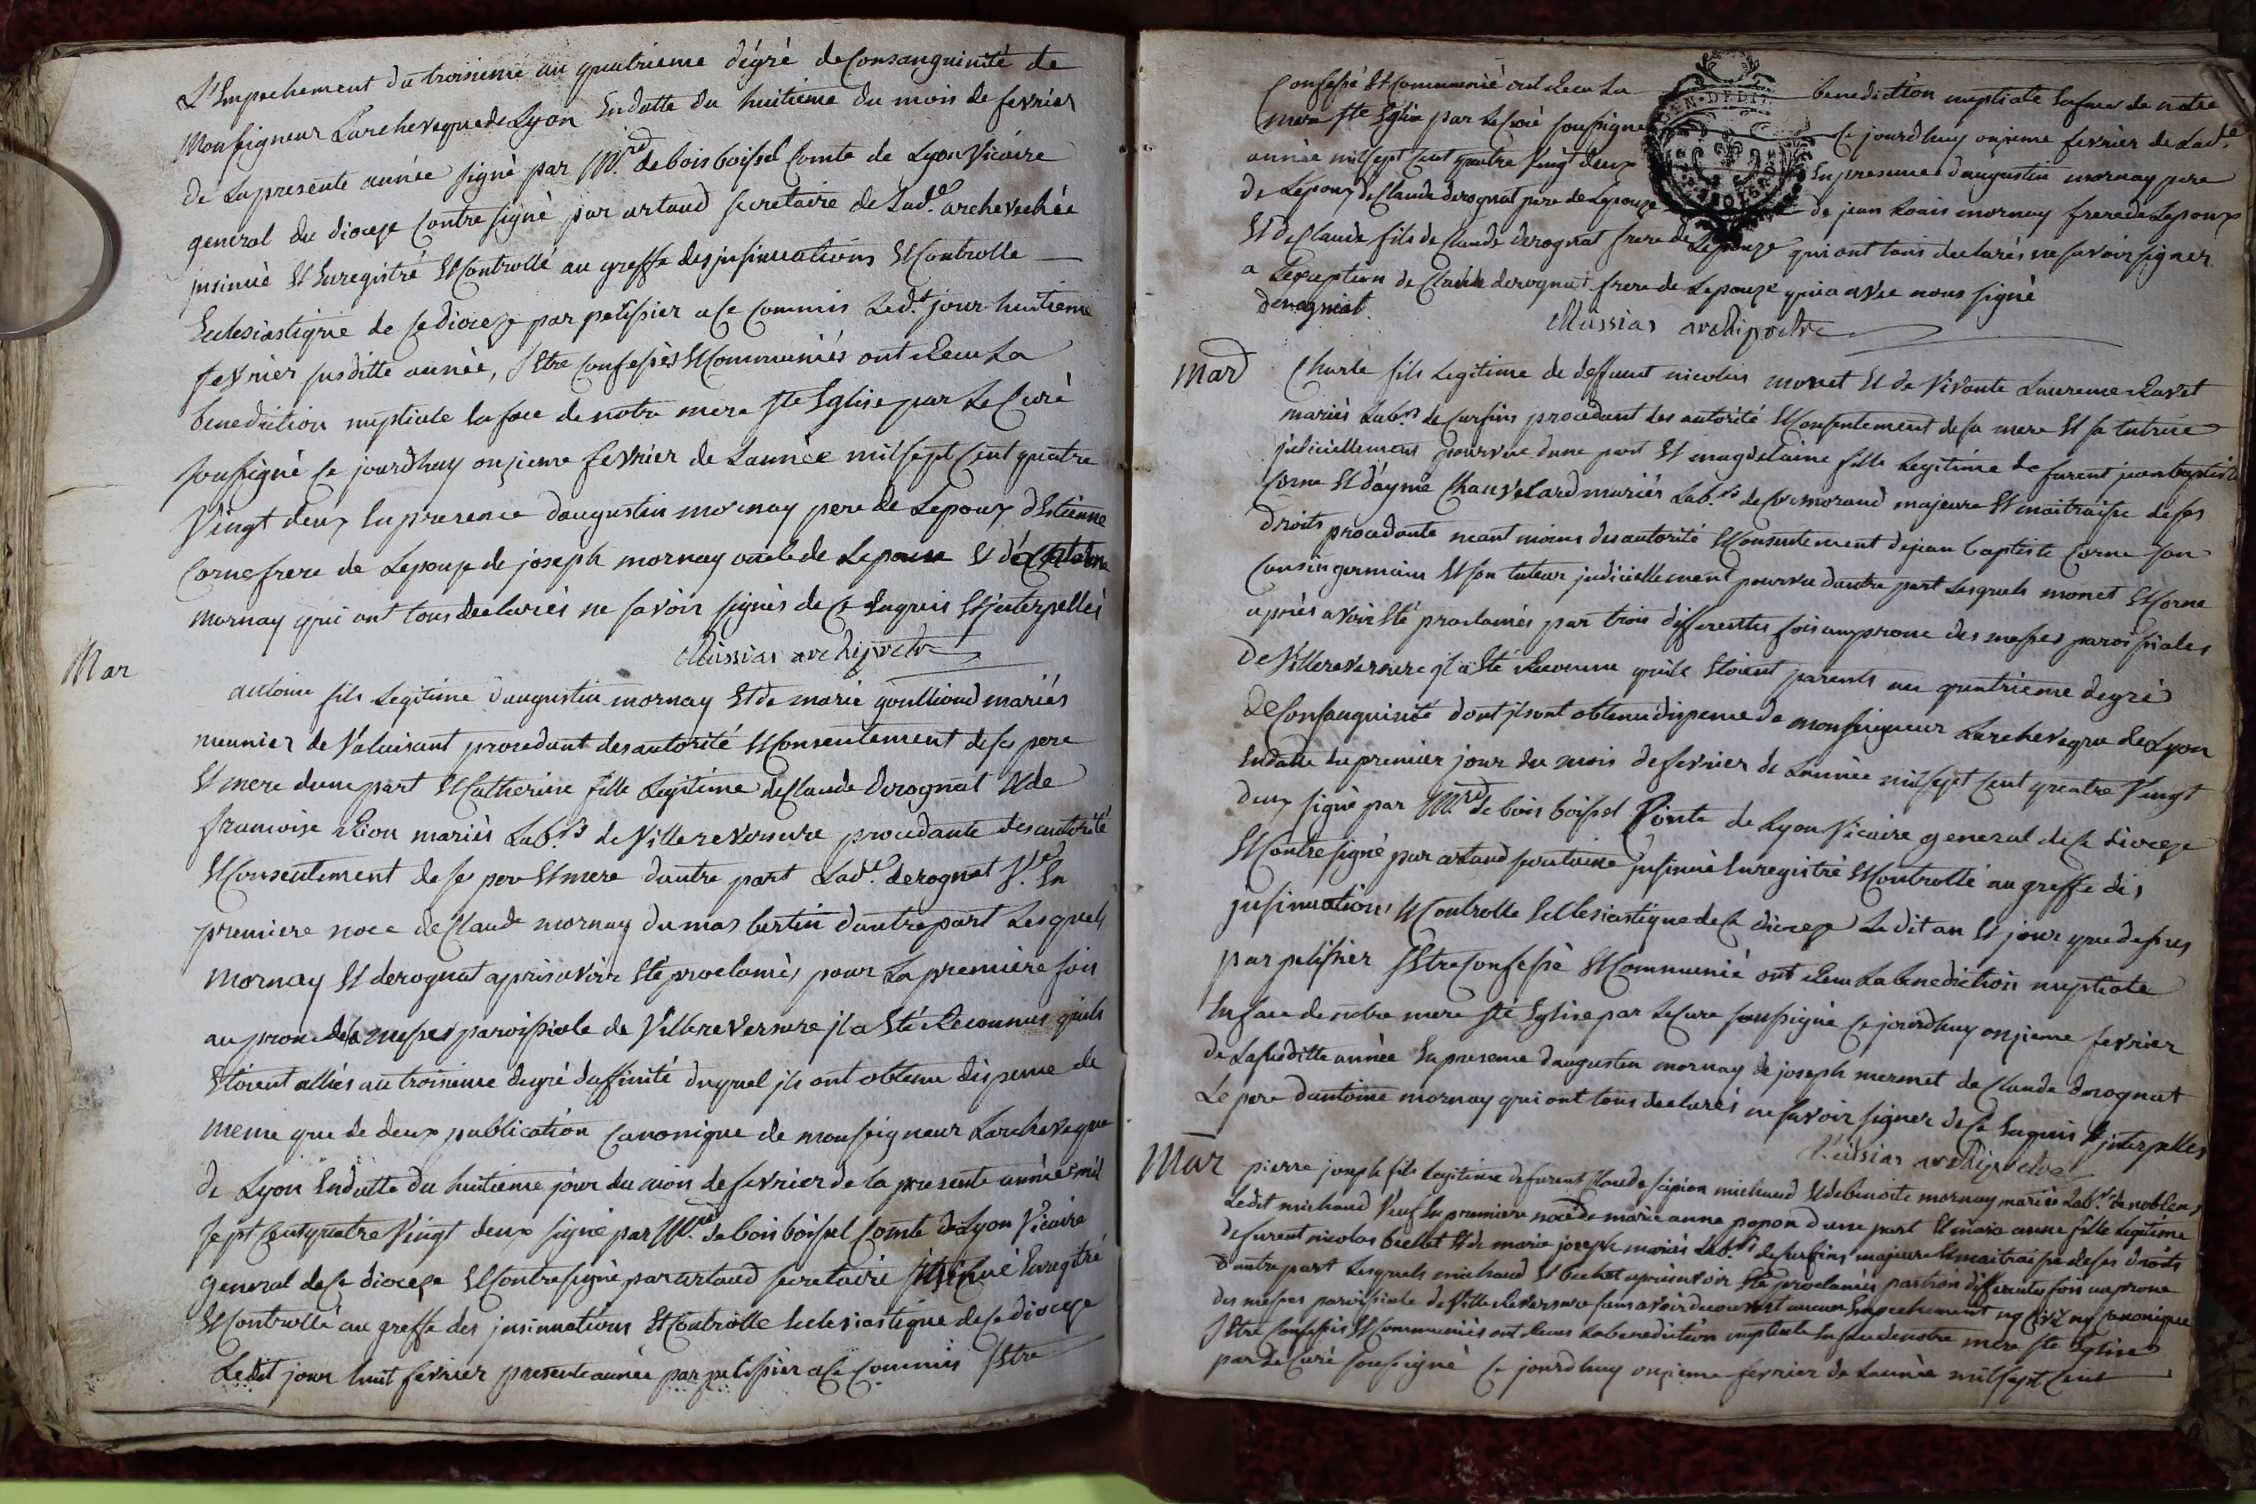 L'Empechement du troisieme au quatrieme dégré de Consanguinité de
Monseigneur Larcheveque de Lyon En datte du huitieme du mois de fevrier
de La presente année signé par Mre. de bois boissel Comte de Lyon Vicaire
general du dioceze Contresigné par artaud secretaire de Lad.e archevechée
jnsinué Et Enregistré Et Controllé au greffe des jnsinuations Et Controlle
Ecclesiastique de ce dioceze par pelissier a ce Commis Led.t jour huitieme
fevrier susditte année, s Etre Confessés Et Communiés ont Receu La
benediction nuptiale En face de notre mere Ste Eglise par Le Curé
soussigné Ce jourdhuy onzieme fevrier de Lannée mil sept Cent quatre
Vingt deux En presence daugustin mornay pere de Lepoux d'Estienne
Corne frere de Lepouze de joseph mornay oncle de Lepoux Et d'antoine
mornay qui ont tous declarés ne savoir signés de Ce Enquis Et jnterpellés
Mussias archiprêtre
Mar
antoine fils Legitime daugustin mornay Et de marie goullioud mariés
meunier de Valuisant procedant des autorité Et Consentement de ses pere
Et mere dune part Et Catherine fille Legitime de Claude derognat Et de
francoise Rion mariés Lab.rs de Villereversure procedante des autorité
Et Consentement de ses pere Et mere dautre part Lad.te derognat V.ve En
premiere noce de Claude mornay du mas bertin dautre part Lesquels
mornay Et derognat apris avoir Eté proclamés pour La premiere fois
au prone des messes paroissiale de Villereversure jl a Eté Reconnus quils
Etoient alliés au troisieme degré daffinité duquel jls ont obtenu dispense de
meme que de deux publication Canonique de monseigneur Larcheveque
de Lyon En datte du huitieme jour du mois de fevrier de la presente année mil
sept Cent quatre Vingt deux signé par Mre. de bois boissel Comte de Lyon Vicaire
general de Ce dioceze Et Contresigné par artaud secretaire jnsinué Enregitré
Et Controllé au greffe des jnsinuations Et Controlle Ecclesiastique de Ce dioceze
Ledit jour huit fevrier presente année par pelissier a Ce Commis s Etre
Confessé Et Communié ont Receu La benediction nuptiale En face de notre
mere Ste Eglise par Le Curé soussigné Ce jourdhuy onzieme fevrier de Lad.e
année mil sept Cent quatre Vingt deux En presence daugustin mornay pere
de Lepoux de Claude derognat pere de Lepouze de jean Louis mornay frere de Lepoux
Et de Claude fils de Claude derognat frere de Lepouze qui ont tous declarés ne savoir signer
a Lexception de Claude derognat frere de Lepouze qui a avec nous signé
derognat
Mussias archiprêtre
Mar
Charle fils Legitime de deffunt nicolas monet Et de Vivante Laurence Ravet
mariés Lab.rs de Curfins procedant des autorité Et Consentement de sa mere Et sa tutrice
judiciellement pourvue dune part Et magdelaine fille Legitime de furent jean baptiste
Corne Et d'aymé Chanvelard mariés Lab.rs de morand majeure Et maitraisse de ses
droits procedante neant moins des autorité Et Consentement de jean baptiste Corne son
Cousin germain Et son tuteur judiciellement pourvu dautre part Lesquels monet Et Corne
apriés avoir Eté proclamés par trois differentes fois au prone des messes paroissiales
de Villereversure jl a Eté Reconnu quils Etoient parents au quatrieme degré
de Consanguinité dont jls ont obtenu dispense de monseigneur Larcheveque de Lyon
En datte du premier jour du mois de fevrier de Lannée mil sept Cent quatre Vingt
deux signé par Mre. de bois boissel Comte de Lyon Vicaire general de Ce dioceze
Et Contresigné par artaud secretaire jnsinué Enregistré Et Controllé au greffe des
jnsinuations Et Controlle Ecclesiastique de Ce dioceze Ledit an Et jour que dessus
par pelissier s Etre Confessé Et Communié ont Receu La benediction nuptiale
En face de notre mere Ste Eglise par Le Cure soussigné Ce jourdhuy onzieme fevrier
de La susditte année En presence daugustin mornay de joseph mermet de Claude derognat
Le pere dantoine mornay qui ont tous declarés ne savoir signer de Ce Enquis Et jnterpellés
Mussias archiprêtre
Mar
pierre joseph fils Legitime de furent Claude sipion michaud Et de benoite mornay mariés Lab.rs de noblens
Ledit michaud Veuf En premiere noce de marie anne popon dune part Et marie anne fille Legitime
de furent nicolas beellet Et de marie joseph mariés Lab.rs de Curfins majeure Et maitraisse de ses droits
dautre part Lesquels michaud Et apriés avoir Eté proclamés par trois differentes fois au prone
des messes paroissiale de Villereversure sans avoir decouvert aucun Empechement ny Civil ny Canonique
s Etre Confessés Et Communiés ont Receus La benediction nuptiale En face de notre mere Ste Eglise
par Le Curé soussigné Ce jourdhuy onzieme fevrier de Lannée mil sept Cent